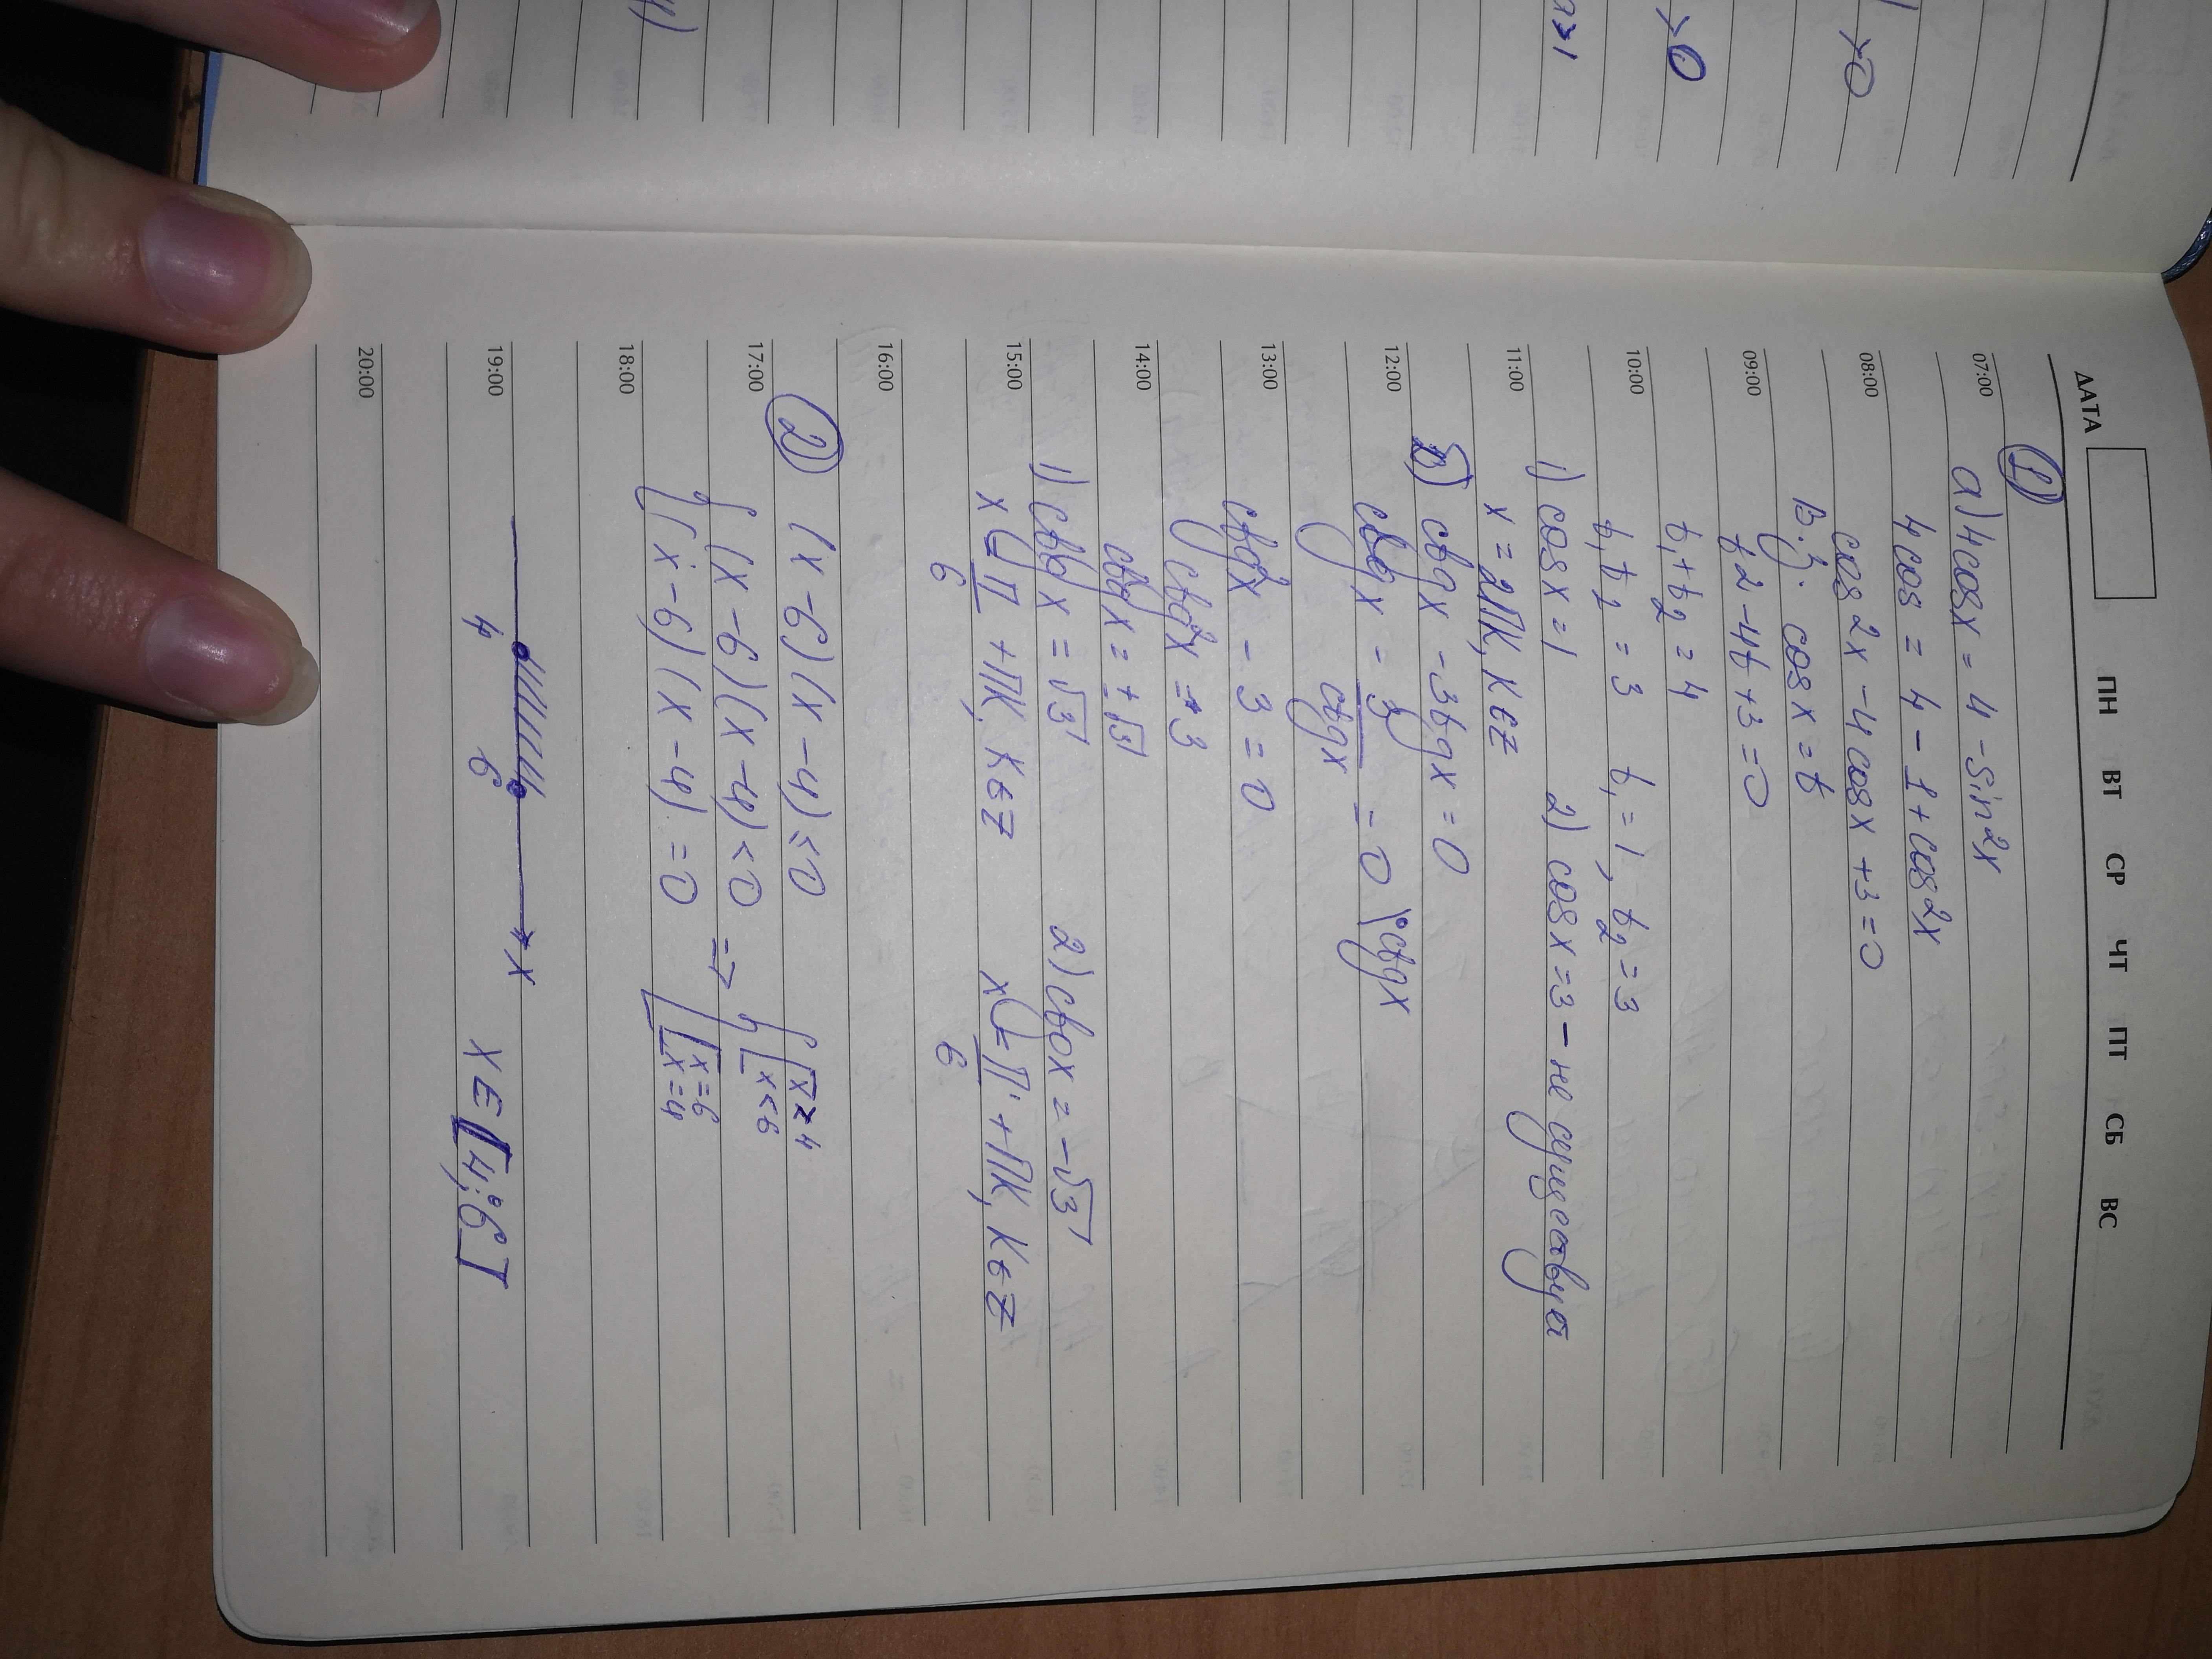 >0
>0
a>1
4)
ДАТА ПН ВТ СР ЧТ ПТ СБ ВС
1)
07:00 а) 4cosx = 4 - sin²x
4cos = 4 - 1 + cos²x
08:00 cos²x - 4cosx + 3 = 0
В.з. cosx = t
09:00 t2 - 4t + 3 = 0
t₁ + t₂ = 4
10:00 t₁t₂ = 3 t₁ = 1, t₂ = 3
1) cosx = 1 2) cosx = 3 - не существует
11:00 x = 2Пк, кєz
б) ctgx - 3tgx = 0
12:00 ctgx - 3/ctgx = 0 | • ctgx
13:00 ctg²x - 3 = 0
ctg²x = 3
14:00 ctgx = ± √3
1) ctgx = √3 2) ctgx = -√3
15:00 x = П/6 + Пк, кєz x = П/6 + Пк, кєz
16:00
2) (x - 6)(x - 4) ≤ 0
17:00 { (x - 6)(x - 4) < 0 => { [ x > 4
x < 6
18:00 [ (x - 6)(x - 4) = 0 [ x = 6
x = 4
x
19:00 4 6 x є [4; 6]
20:00